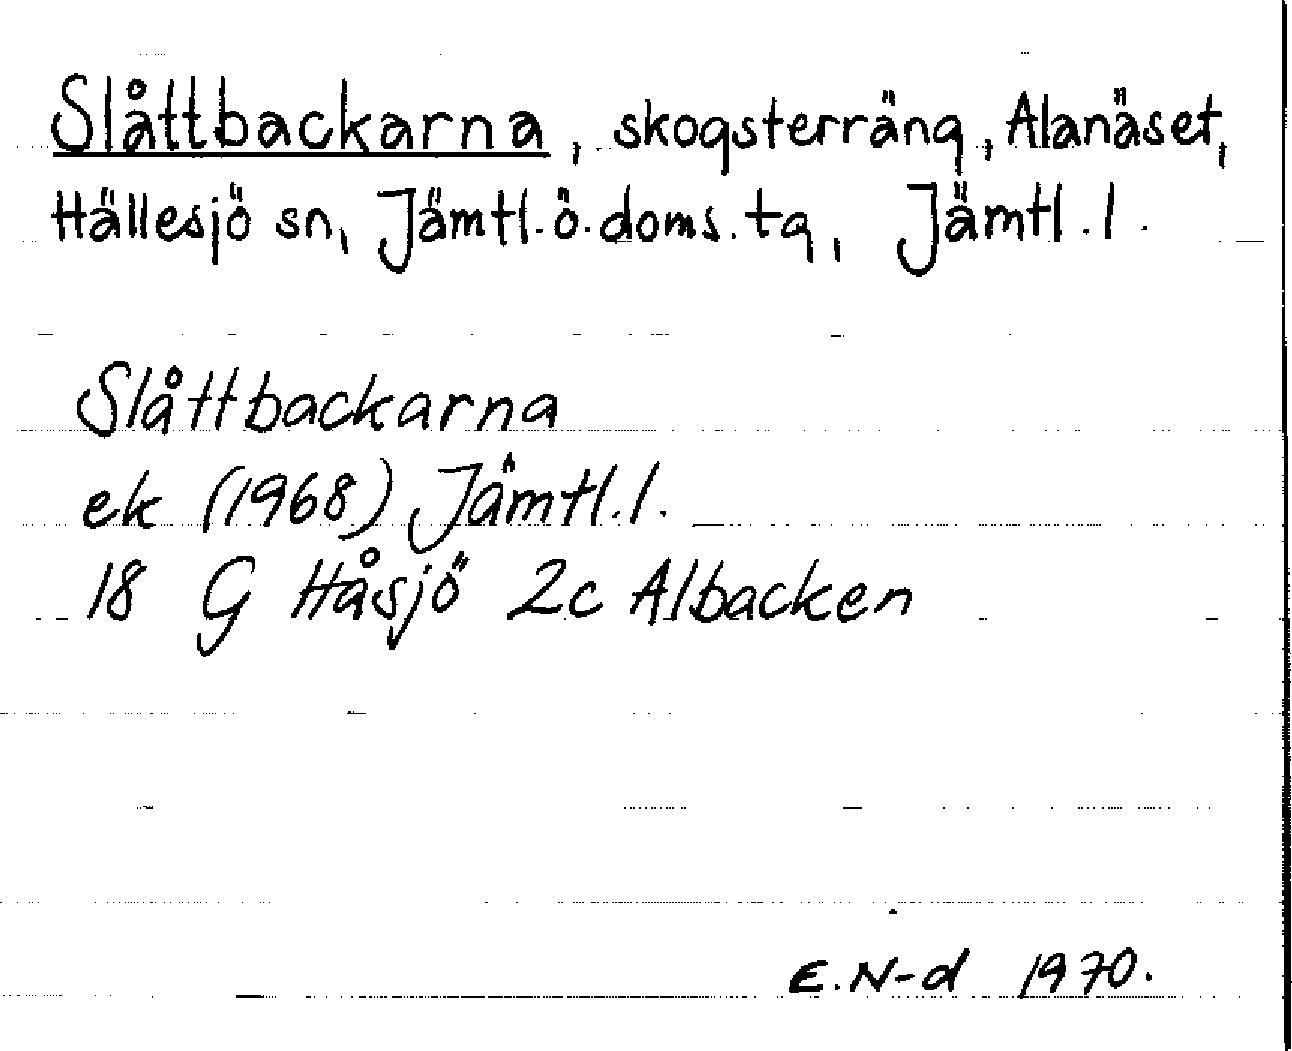 Slåttbackarna, skogsterräng, Alanäset,
Hällesjö sn, Jämtl.ö.doms.tg, Jämtl.l.
Slåttbackarna
ek (1968) Jämtl.l.
18 G Håsjö 2c Albacken
E.N-d 1970.